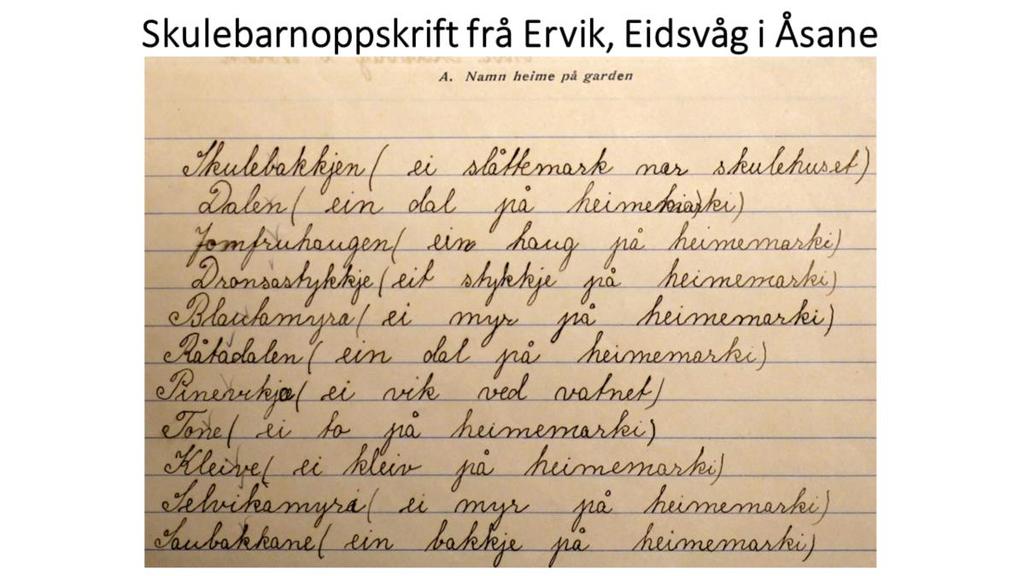 Skulebarnoppskrift frå Ervik, Eidsvåg i Åsane
A. Namn heime på garden
Skulebakkjen ( ei slåttemark nær skulehuset)
Dalen ( ein dal på heimemarki)
Jomfruhaugen ( ein haug på heimemarki)
Dronsastykkje (eit stykkje på heimemarki)
Blautamyra ( ei myr på heimemarki)
Råtådalen ( ein dal på heimemarki)
Pinevikjo ( ei vik ved vatnet)
Tone ( ei to på heimemarki)
Kleive ( ei kleiv på heimemarki)
Selvikamyri ( ei myr på heimemarki)
Saubakkane ( ein bakkje på heimemarki)